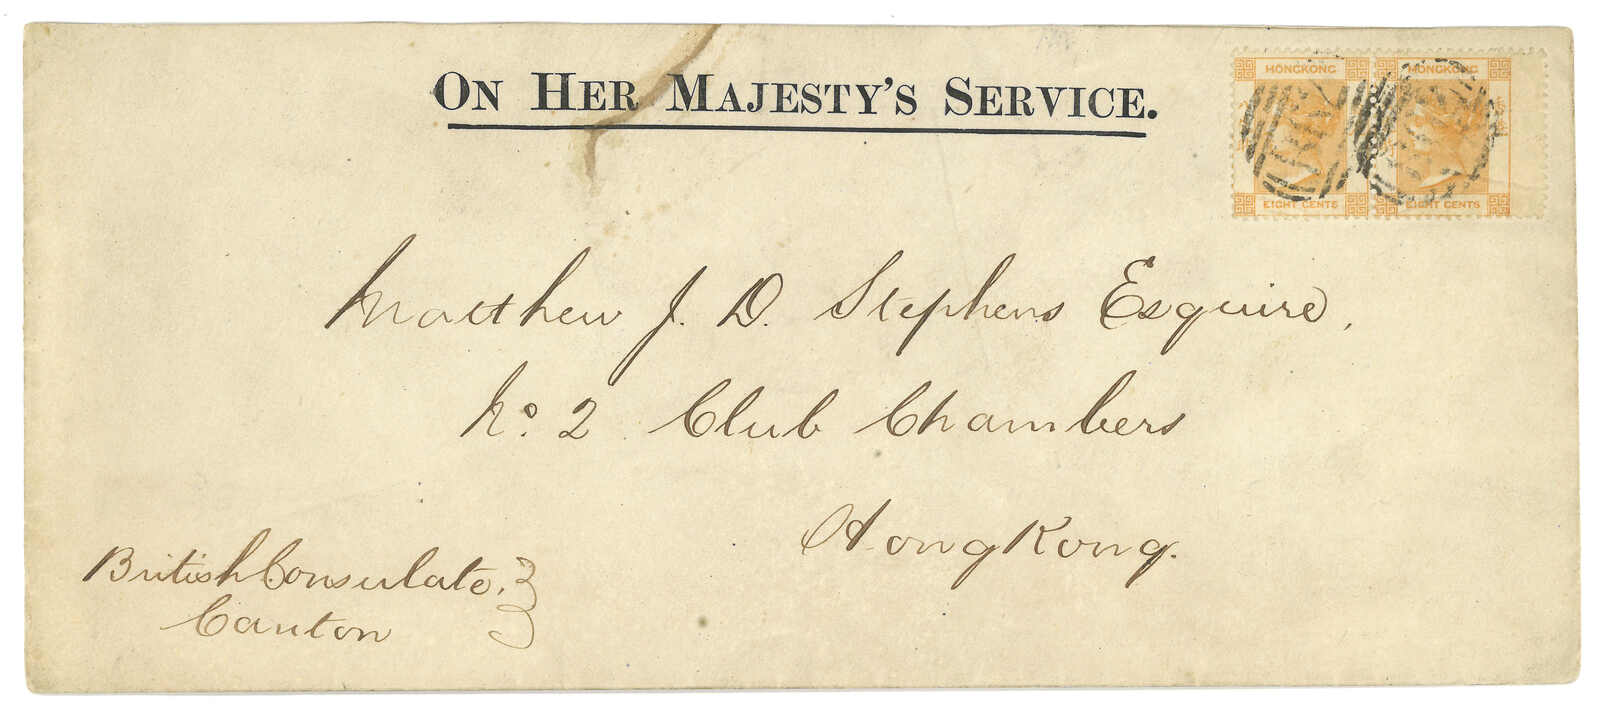 ON HER MAJESTY'S SERVICE.
HONGKONG
EIGHT CENTS
HONGKONG
EIGHT CENTS
Matthew J. D. Stephens Esquire,
No. 2 Club Chambers
HongKong.
British Consulate,
Canton